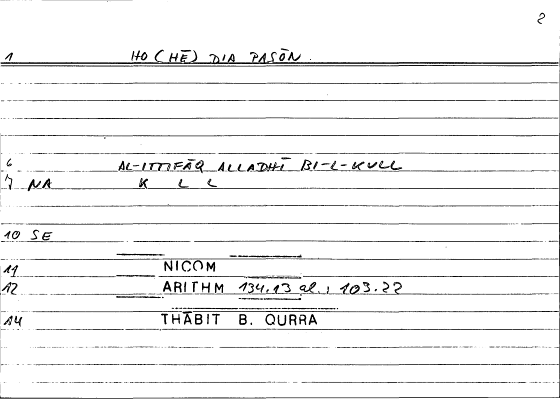 2
1 HO (HĒ) DIA PASŌN.
6 AL-ITTIFĀQ ALLADHĪ BI-L-KULL
7 NA K L L
10 SE
11 NICOM
12 ARITHM 134.13 al.; 103.22
14 THĀBIT B. QURRA